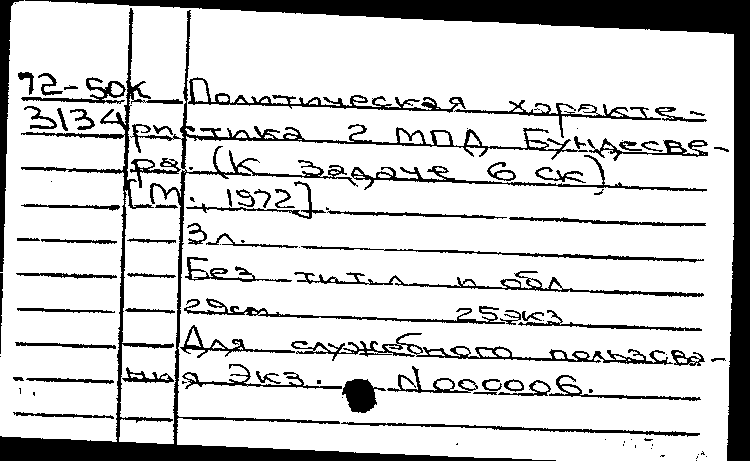 72-50К Политическая характе-
3134 ристика 2 МПД Бундесве-
ра. (К задаче 6 СК).
[М., 1972].
3л.
Без тит.л. и обл.
29см. 25экз.
Для служебного пользова-
ния Экз. N000006.